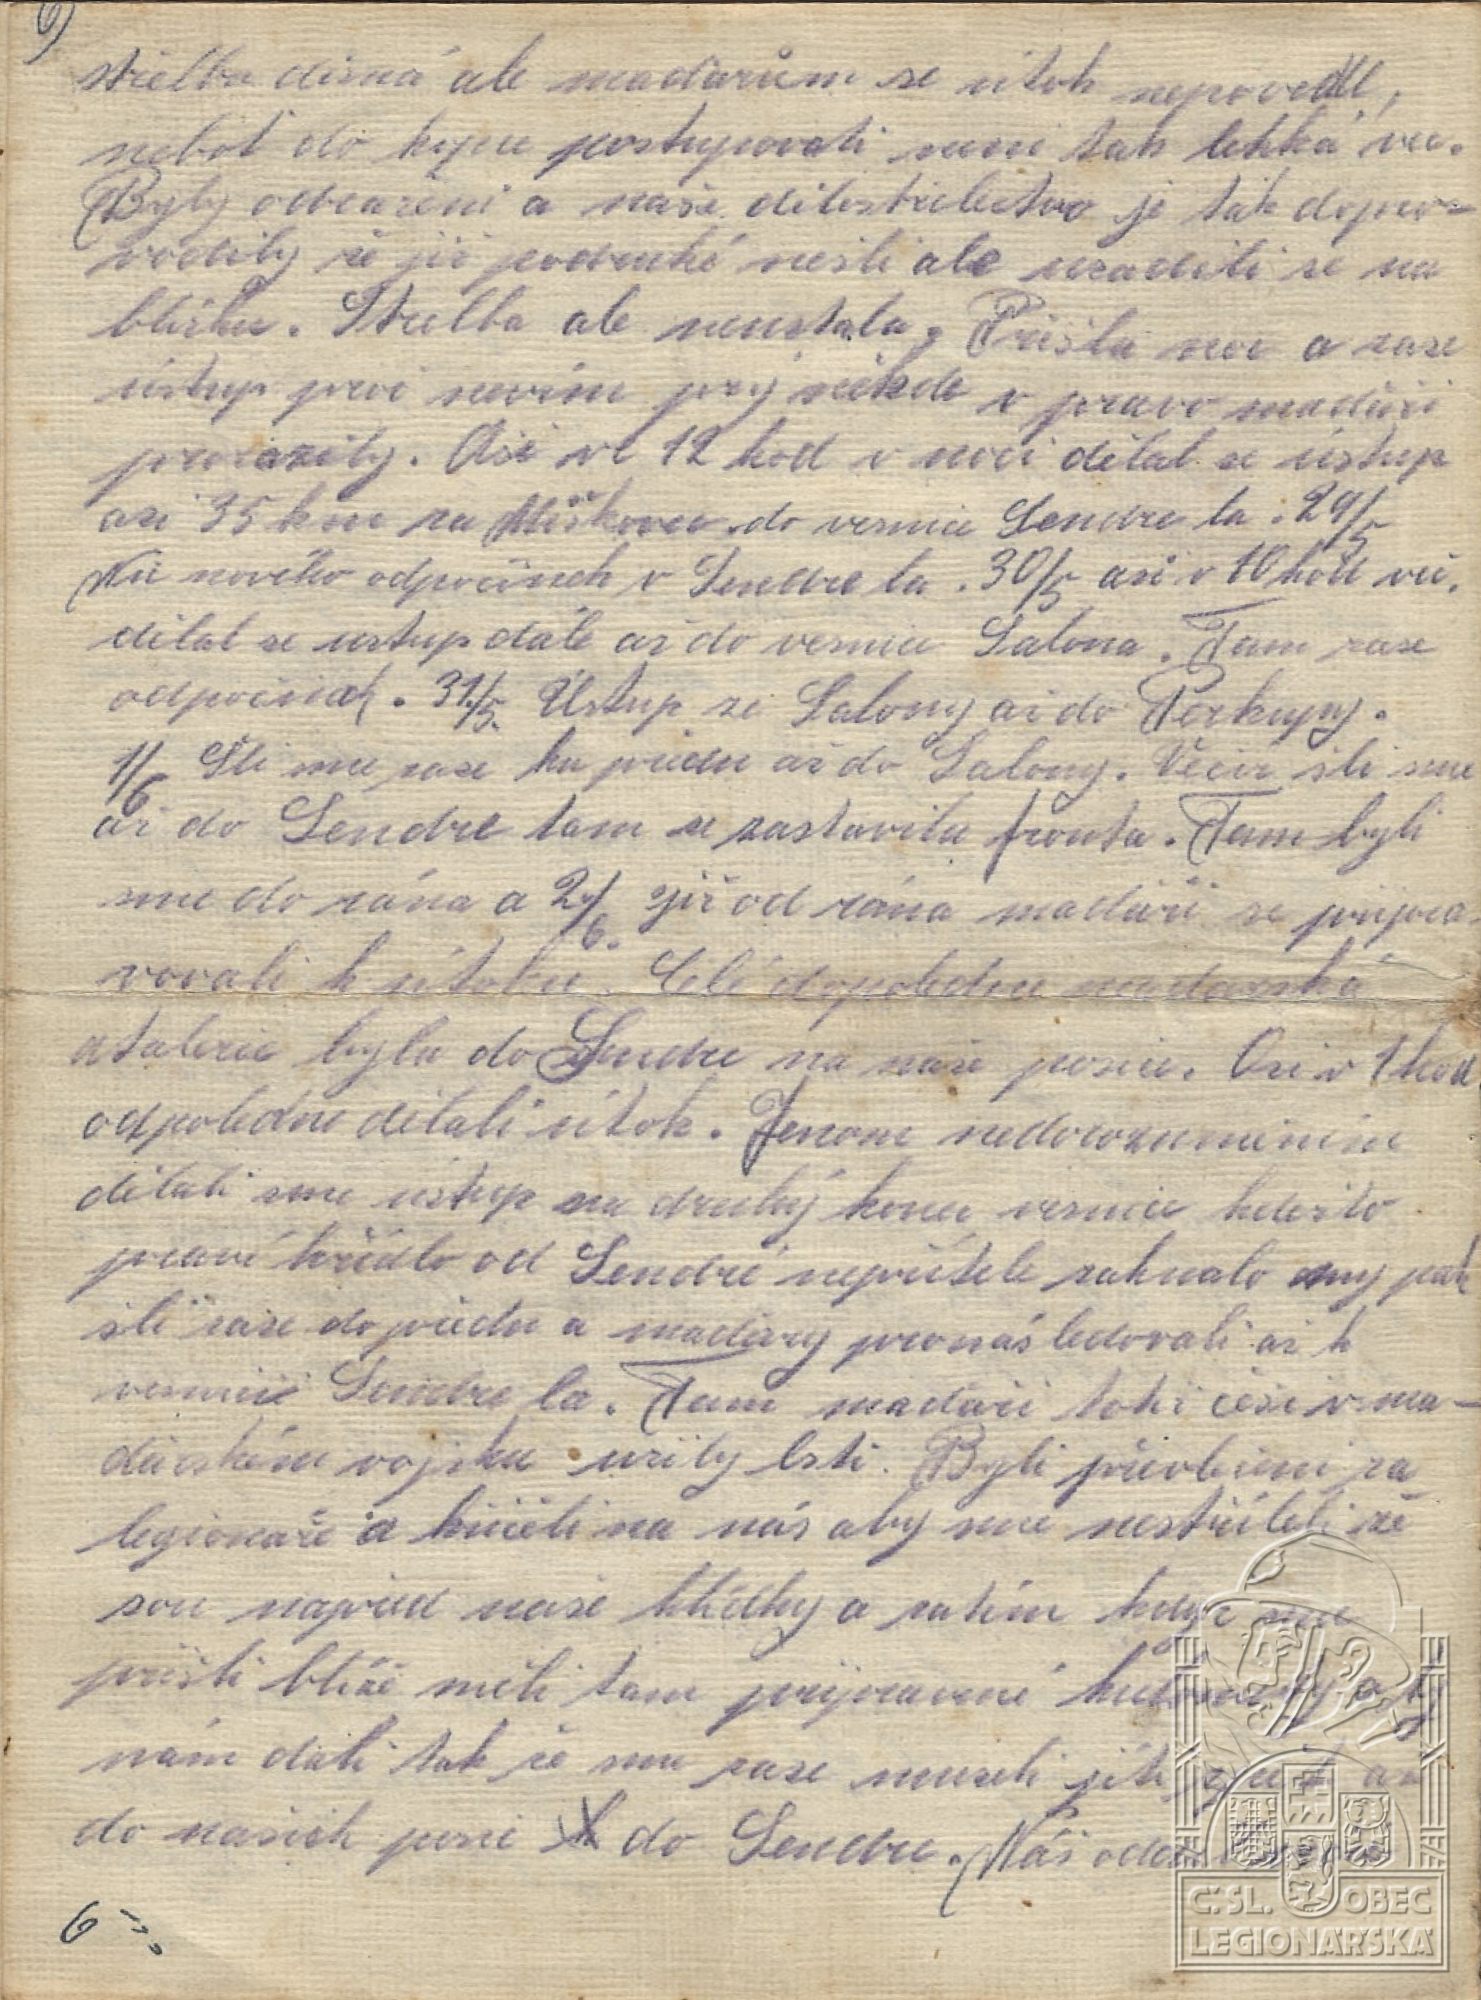 6)
střelba divná ale maďarům se útok nepovedl,
neboť do kopce postupovati není tak lehká věc.
Byly odraženi a naše dělostřelectvo je tak dopro-
vodily že již podruhé nešli ale usadili se na
blízku. Střelba ale neustala. Přišla noc a zase
ústup prví nevím prý někde v pravo maďaři
prorazily. Asi ve 12 hod v noci dělal se ústup
asi 35 km za Miškovec do vesnice Sendre la. 29/5
Nic nového odpočinek v Sendre la. 30/5 asi v 10 hod več.
dělal se ustup dále až do vesnice Salona. Tam zase
odpočinek. 31./5. Ústup ze Salony až do Perkupy.
1/6 Šli sme zase ku předu až do Salony. Večír šli sme
až do Sendre tam se zastavila fronta. Tam byli
sme do rána a 2/6. již od rána maďaři se pripra-
vovali k útoku. Celé dopoledne maďarská
atalerie byla do Sendre na naše posice. Asi v 1 hod
odpoledne dělali útok. Jenom nedorozuměním
dělali sme ústup na druhý konec vesnice kdežto
pravé křídlo od Sendré nepřítele zahnalo my pak
šli zase do předu a maďary pronásledovali až k
vesnici Sendre la. Tam maďaři totiž češi v ma-
ďarském vojsku užily lsti. Byli převlečeni za
legionáře a křičeli na nás aby sme nestříleli že
sou napřed naše hlídky a zatím když sme
přišli blíže měli tam pripravené kulomety a ty
nám dali tak že sme zase museli jíti zpět až
do našich posic do Sendre. Náš
6
Č.SL. OBEC
LEGIONÁŘSKÁ